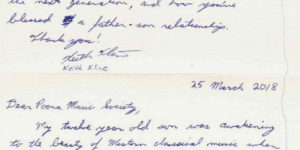 the next generation, and how you've
blessed a father-son relationship.
Thank you!
Keith Kline
Keith Kline
25 March 2018
Dear Poona Music Society,
My twelve year old son was awakening
to the beauty of Western classical music when